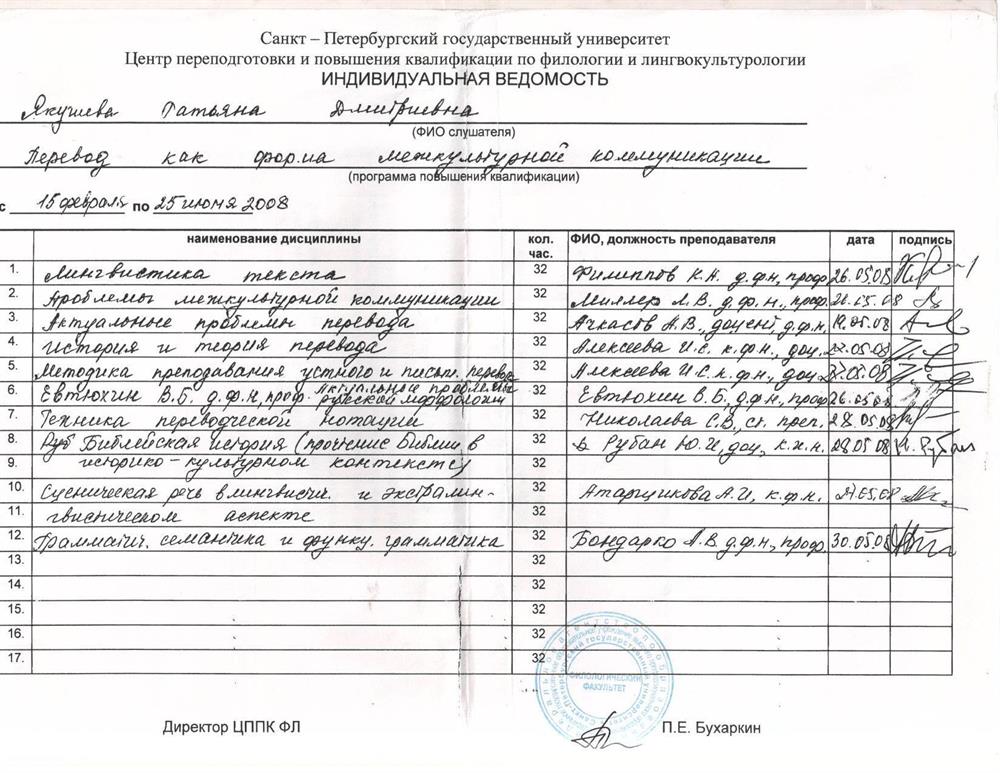 Санкт – Петербургский государственный университет
Центр переподготовки и повышения квалификации по филологии и лингвокультурологии
ИНДИВИДУАЛЬНАЯ ВЕДОМОСТЬ
Якушева Татьяна Дмитриевна
(ФИО слушателя)
Перевод как форма межкультурной коммуникации
(программа повышения квалификации)
с 15 февраля по 25 июня 2008
наименование дисциплины кол. час. ФИО, должность преподавателя дата подпись
1. Лингвистика текста 32 Филиппов К.А. д.ф.н, проф. 26.05.08
2. Проблемы межкультурной коммуникации 32 Миллер Л.В. д.ф.н., проф.
3. Актуальные проблемы перевода 32 Ачкасов А.В., доцент, д.ф.н. 19.05.08
4. История и теория перевода 32 Алексеева И.С. к.ф.н., доц. 22.05.08
5. Методика преподавания устного и письм. перевода 32 Алексеева И.С. к.ф.н., доц. 22.05.08
6. Евтюхин В.Б. д.ф.н, проф. Актуальные проблемы русской морфологии 32 Евтюхин В.Б., д.ф.н, проф. 26.05.08
7. Техника переводческой нотации 32 Николаева С.В., ст. преп. 28.05.08
8. Руб Библейская история (прочтение Библии в 32 Рубан Ю.И, доц, к.х.н. 28.05.08 Рубан
9. историко-культурном контексте) 32
10. Сценическая речь в лингвистич. и экстралин- 32 Атарщикова А.И, к.ф.н.
11. гвистическом аспекте 32
12. Грамматич. семантика и функц. грамматика 32 Бондарко А.В. д.ф.н, проф. 30.05.08
13. 32
14. 32
15. 32
16. 32
17. 32
ФИЛОЛОГИЧЕСКИЙ
ФАКУЛЬТЕТ
Директор ЦППК ФЛ П.Е. Бухаркин